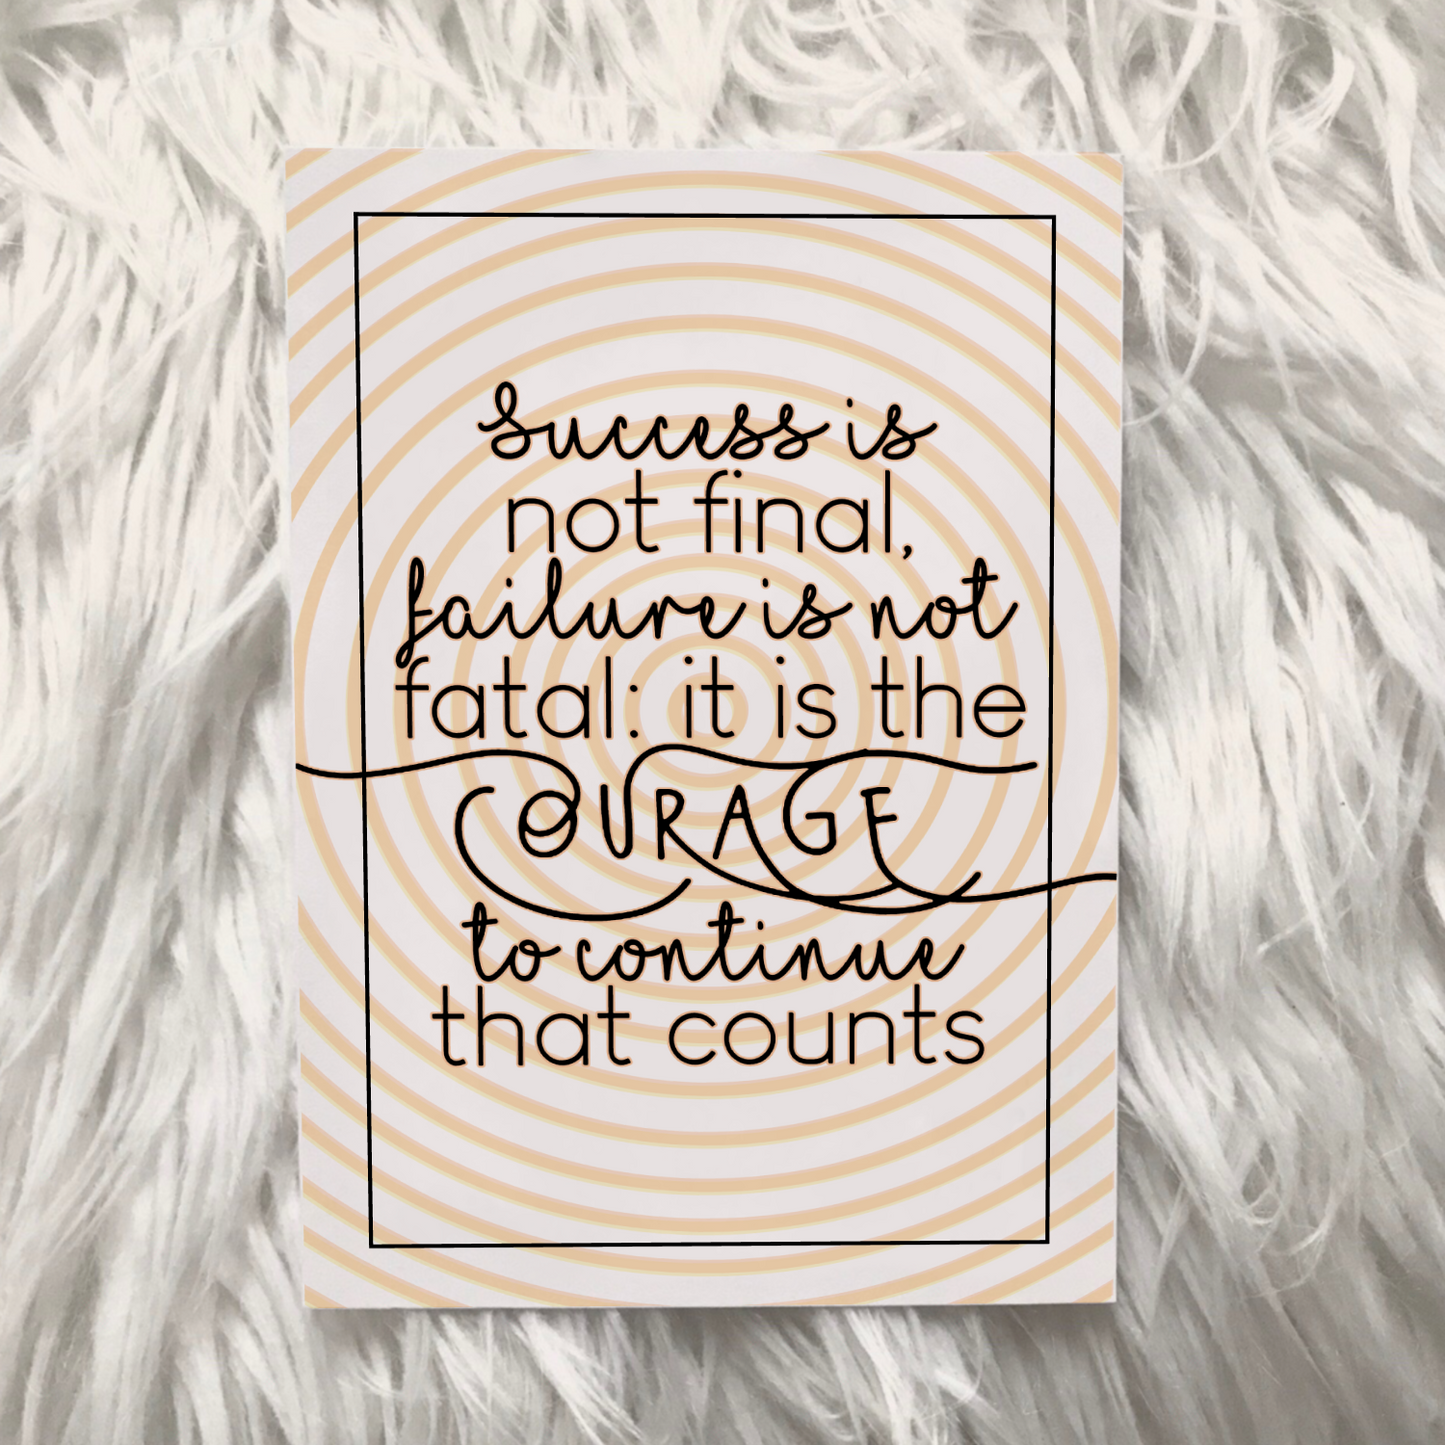 Success is
not final,
failure is not
fatal: it is the
COURAGE
to continue
that counts